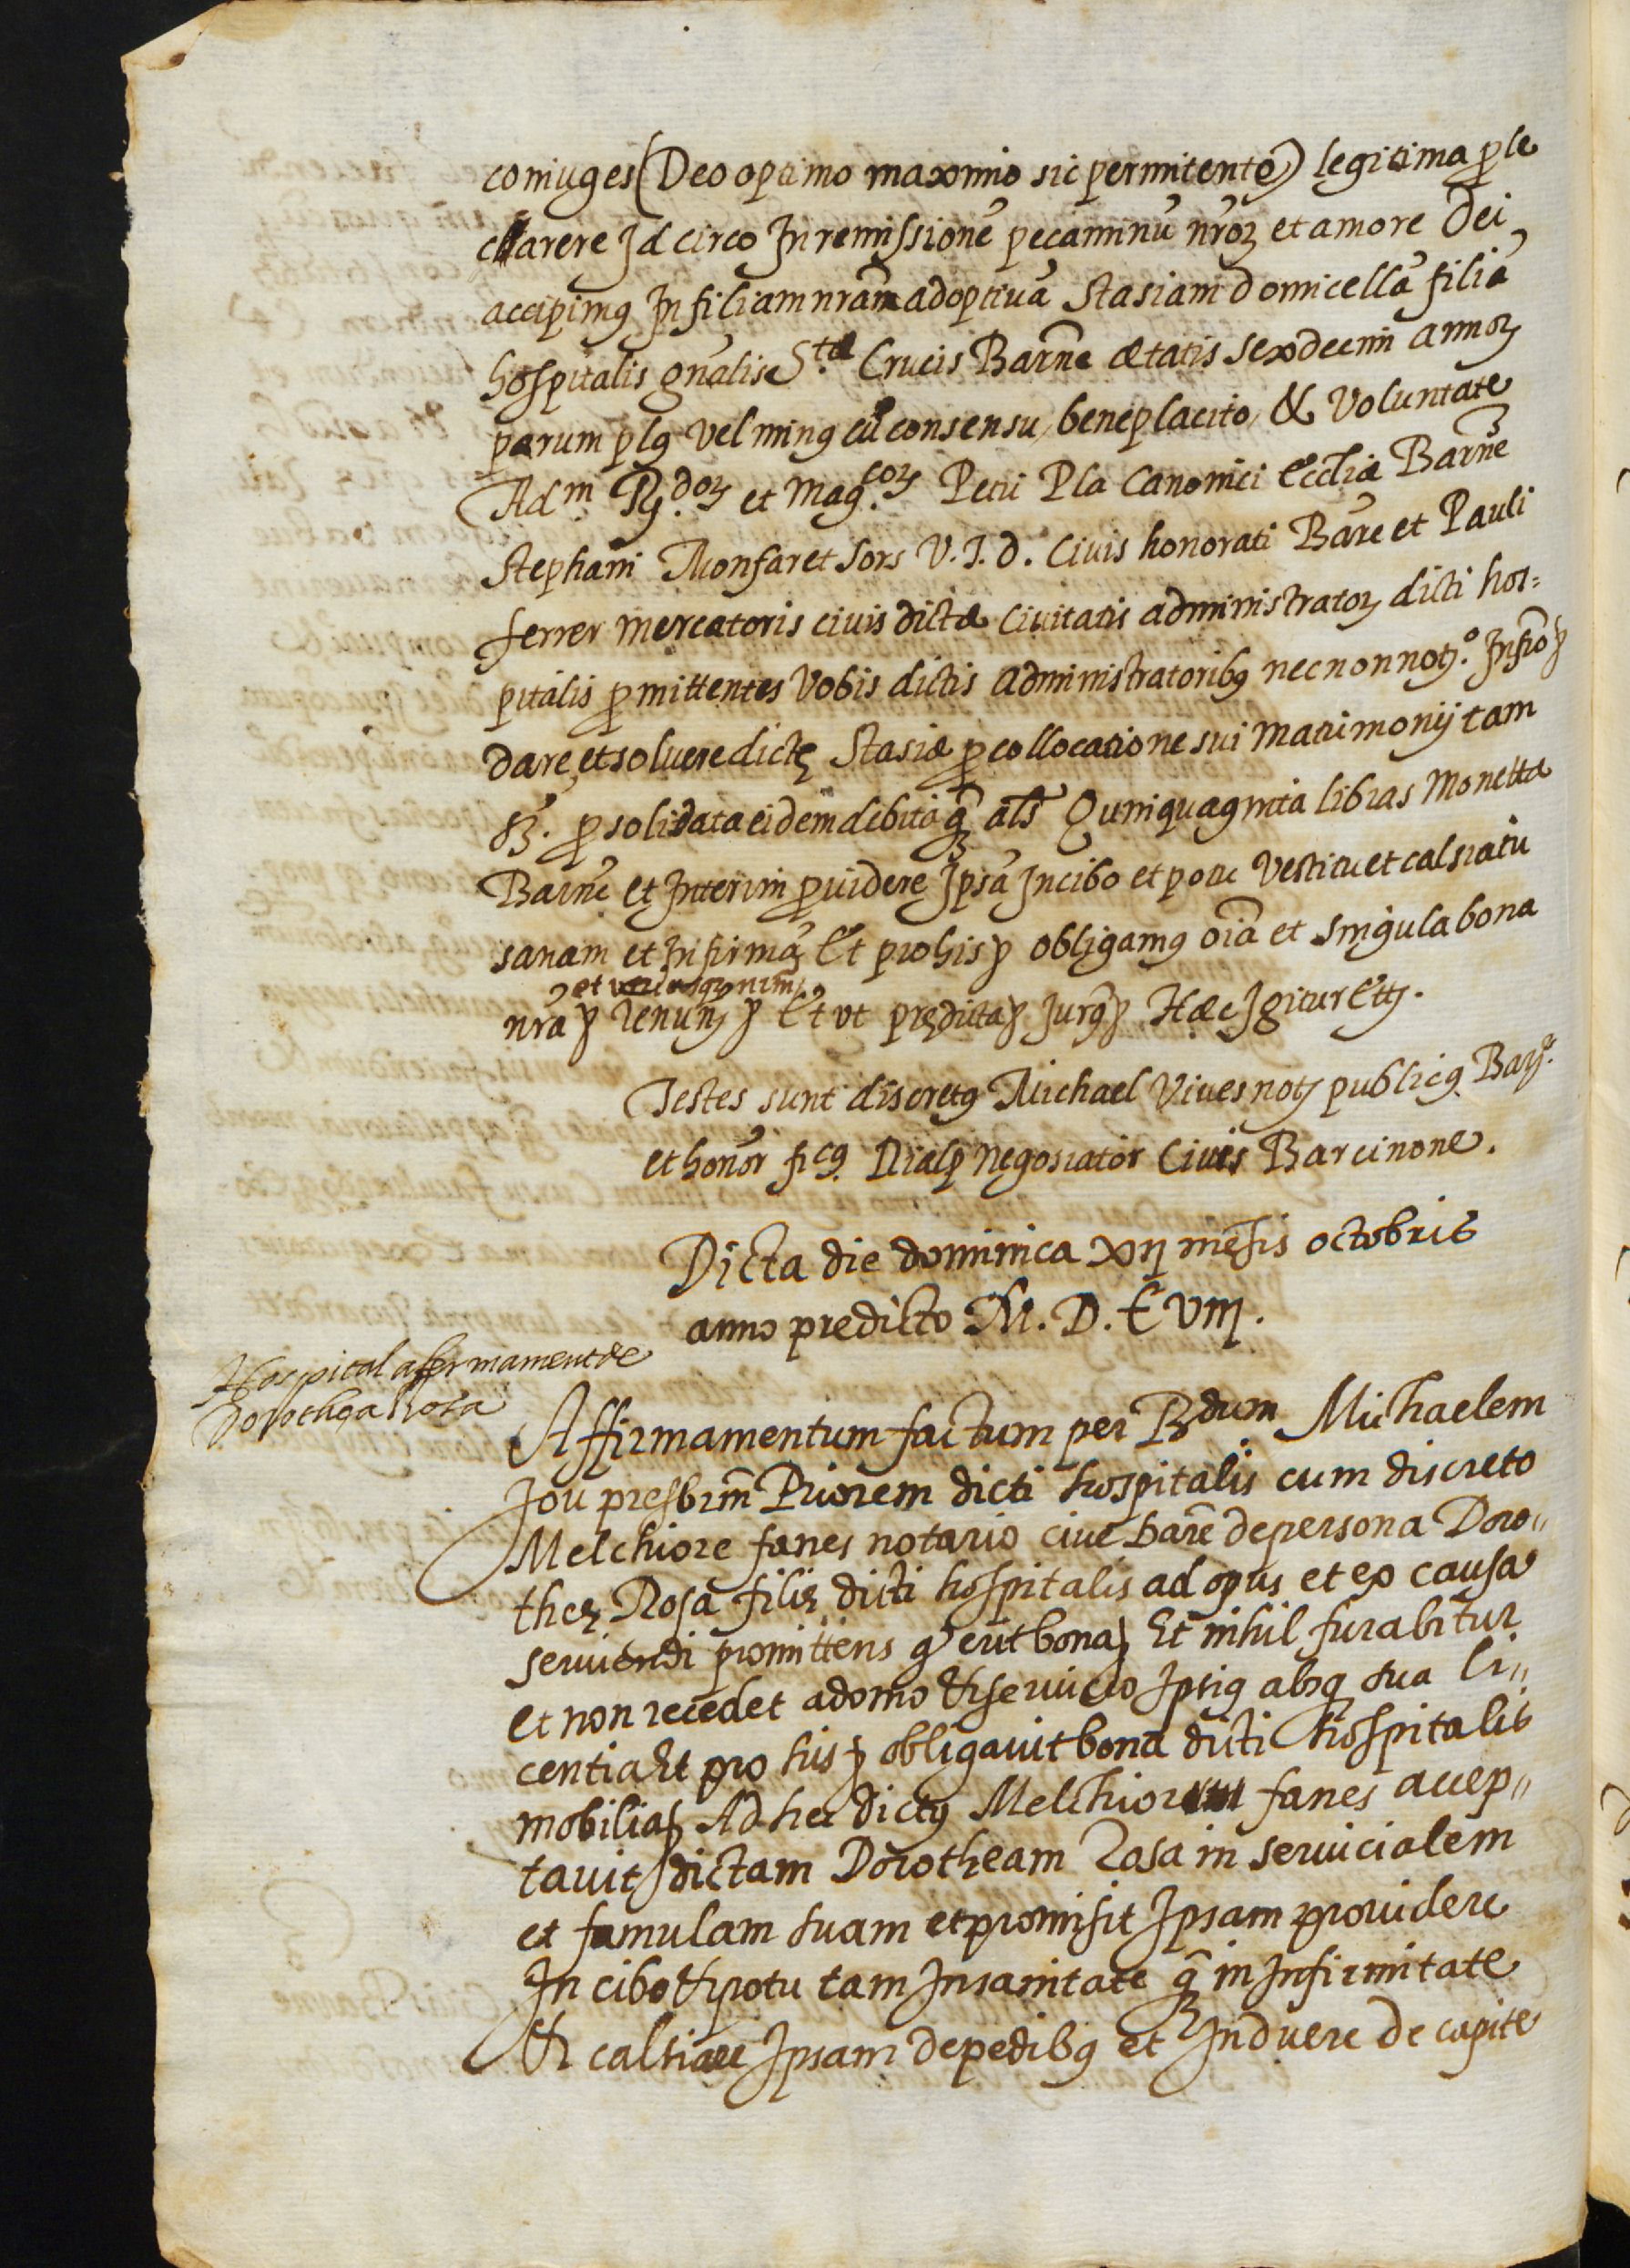 coniuges (Deo optimo maximo sic permitente) legitima ꝓle
carere Id circo In remissionē pecaminū nrōꝝ et amore Dei
accipimꝰ In filiam nrām adoptiuā Stasiam domicellā filiā
hospitalis gnālis Stæ Crucis Barnē ætatis sexdecim annoꝝ
parum plꝰ vel minꝰ cū consensu, beneplacito, & Voluntate
Adm Rdoꝝ et Magcoꝝ Petri Pla Canonici Eccliæ Barnē
Stephani Monfaret Sors V. I. d. Ciuis honorati Barē et Pauli
ferrer mercatoris ciuis dictæ Ciuitatis administratoꝝ dicti hos=
pitalis ꝓmittentes Vobis dictis administratoribꝰ necnon not.º Infrō
dare, et soluere dictę Stasiæ ꝓ collocatione sui matrimonij tam
ꝓ solidata eidem debita q̄ als̄ Quinquaginta libras Monettæ
Barnē et Interim ꝓuidere Ipsā In cibo et potu Vestitu et calsiatu
sanam et Infirmā Et pro his obligamꝰ oīa et singula bona
nrā Renun Et ut prędicta Jur Hæc Igitur Ett.
Testes sunt discretꝰ Michael Viues not publicꝰ Bar.
et honor fr.cꝰ Dialp negosiator Ciuis Barcinone.
Dicta die dominica xij mēsis octobris
anno predicto M. D. C viij.
Hospital afermament de
Dorothea Rosa
Affirmamentum factum per Rdum Michaelem
Jou presbrm̄ Priorem dicti hospitalis cum discreto
Melchiore fanes notario ciue barē de persona Doro〃
theę Rosa filię dicti hospitalis ad opus et ex causa
seruiendi promittens ꝙ erit bona Et nihil furabitur
et non recedet a domo & seruicio Ipsiꝰ absq sua li〃
centia Et pro his obligauit bona dicti hospitalis
mobilia Ad hec dictꝰ Melchior fanes accep〃
tauit dictam Dorotheam Rosa in seruicialem
et famulam suam et promisit Ipsam prouidere
In cibo & potu tam In sanitate q̄ in Infirmitate
Et calsiare Ipsam de pedibꝰ et Induere de capite